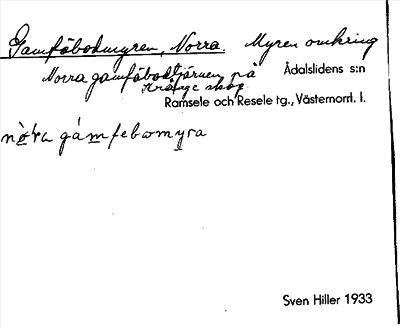 Gamfäbodmyren, Norra. Myren omkring
Norra gamfäbodtjärnen på
Krånge skog
Ådalslidens s:n
Ramsele och Resele tg., Västernorrl. l.
gámfebomyra
Sven Hiller 1933